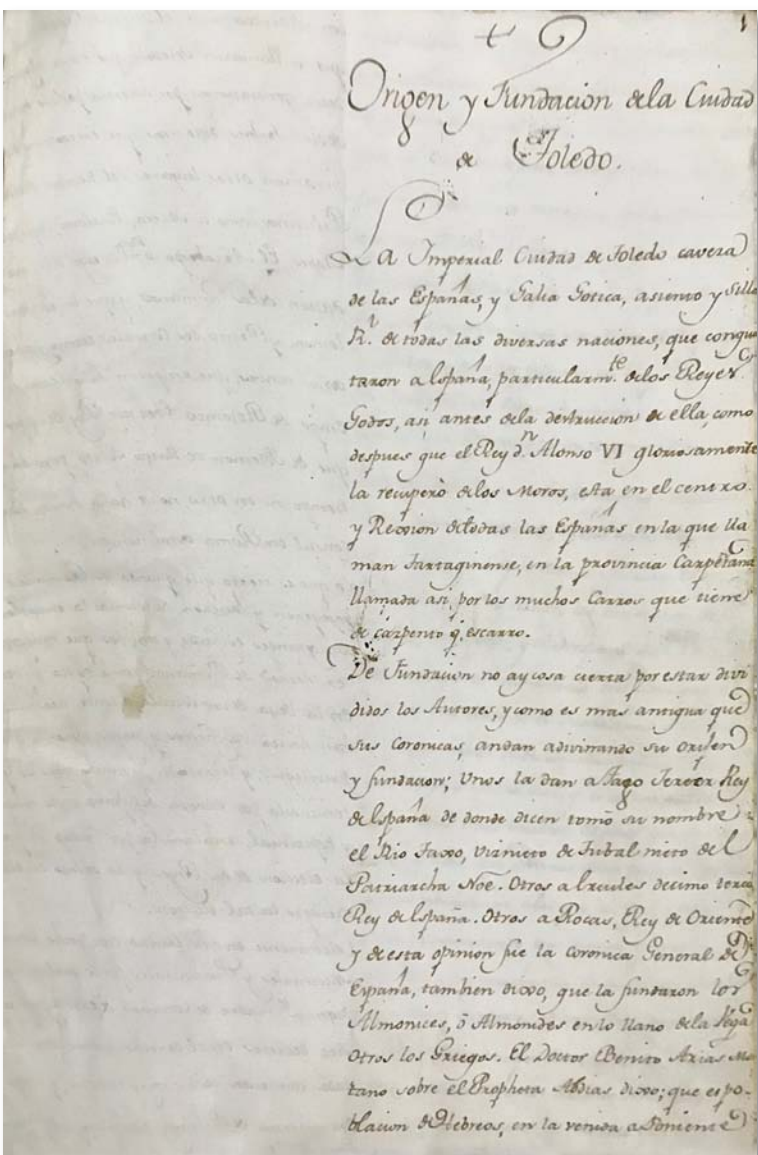 1
Origen y Fundacion de la Ciudad
de Toledo.
La Imperial Ciudad de Toledo caveza
de las Españas, y Galia Gotica, asiento y Silla
R.l de todas las diversas naciones, que conquis
taron a España, particularm.te de los Reyes
Godos, asi antes de la destruccion de ella, como
despues que el Rey d.n Alonso VI gloriosamente
la recuperò de los Moros, esta en el centro
y Rexion de todas las Españas en la que lla
man Tartaginense, en la provincia Carpetana
llamada asi, por los muchos Carros que tiene
de carpento q. es carro.
De Fundacion no ay cosa cierta por estar divi
didos los Autores, y como es mas antigua que
sus Coronicas, andan adivinando su orixen
y fundacion; Unos la dan a Tago Tercer Rey
de España de donde dicen tomò su nombre
el Rio Taxo, viznieto de Tubal nieto del
Patriarcha Noe. Otros a Ercules decimo tercio
Rey de España. Otros a Rocas, Rey de Oriente
y de esta opinion fue la coronica General de
España, tambien dixo, que la fundaron los
Almonices, ò Almonides en lo llano de la Vega
Otros los Griegos. El Doctor Benito Arias Mo
tano sobre el Propheta Abdias dixo; que es po-
blacion de Hebreos, en la venida a Poniente